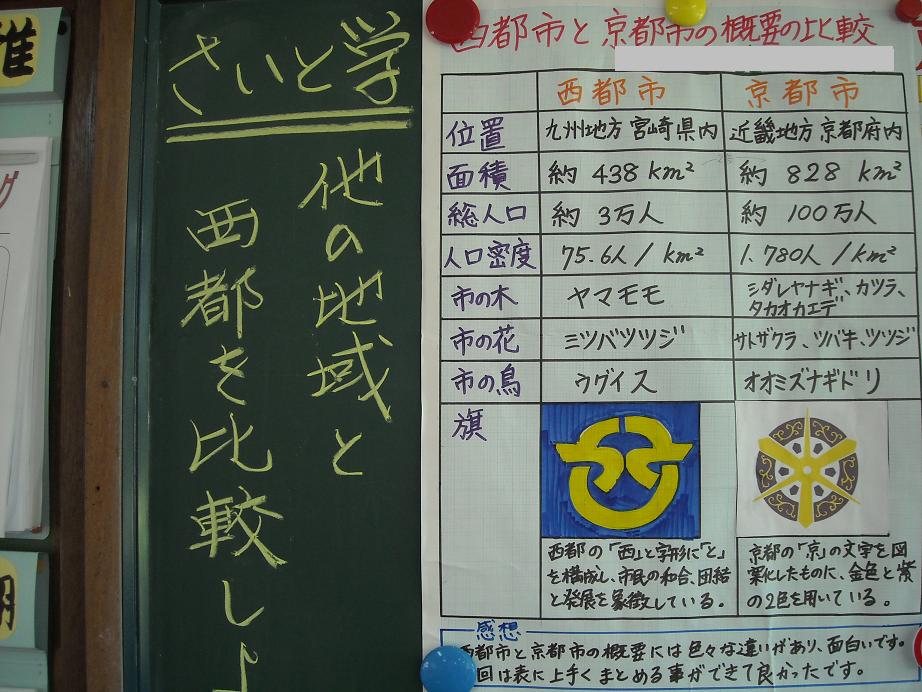 さいと学
他の地域と
西都を比較しよ
西都市と京都市の概要の比較
西都市 京都市
位置 九州地方 宮崎県内 近畿地方 京都府内
面積 約 438 km² 約 828 km²
総人口 約 3万人 約 100万人
人口密度 75.6人/km² 1.780人/km²
市の木 ヤマモモ シダレヤナギ、カツラ、
タカオカエデ
市の花 ミツバツツジ サトザクラ、ツバキ、ツツジ
市の鳥 ウグイス オオミズナギドリ
旗
西都の「西」と字形に「と」
を構成し、市民の和合、団結
と発展を象徴している。
京都の「京」の文字を図
案化したものに、金色と紫
の2色を用いている。
感想
西都市と京都市の概要には色々な違いがあり、面白いです。
回は表に上手くまとめる事ができて良かったです。